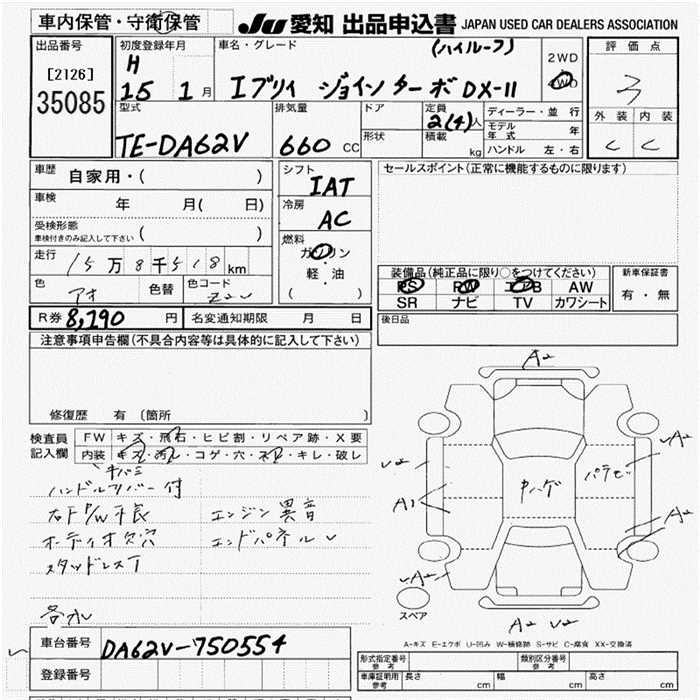 車内保管・守衛保管
JU 愛知 出品申込書 JAPAN USED CAR DEALERS ASSOCIATION
出品番号
[2126]
35085
初度登録年月
H
15 1月
車名・グレード
(ハイルーフ)
エブリィ ジョインターボ DX-II
2WD
4WD
評価点
3
外装 内装
C C
型式
TE-DA62V
排気量
660 CC
ドア
形状
定員
2(4)人
積載
kg
ディーラー・並行
モデル年式 年
ハンドル 左・右
車歴
自家用・( )
車検
年 月( 日)
受検形態
車検付きのみ記入して下さい ( )
走行
15万8千518km
色
アオ
色替
色コード
Z2U
シフト
IAT
冷房
AC
燃料
ガソリン
軽・油
( )
セールスポイント(正常に機能するものに限ります)
装備品(純正品に限り○をつけてください)
PS PW エアB AW
SR ナビ TV カワシート
新車保証書
有・無
後日品
R券 8,190 円
名変通知期限 月 日
注意事項申告欄(不具合内容等は具体的に記入して下さい)
修復歴 有 (箇所
検査員
記入欄
FW キズ・飛石・ヒビ割・リペア跡・X要
内装 キズ・汚レ・コゲ・穴・ネリ・キレ・破レ
キバミ
ハンドルカバー付
右F P/W不良 エンジン異音
オーディオ欠穴 エンドパネルU
スタッドレスT
車台番号
DA62V-750554
登録番号
A2
A2
U2
A1
中ハゲ
A2
A2
スペア
A2 U2
A-キズ E-エクボ U-凹み W-補修跡 S-サビ C-腐食 XX-交換済
形式指定番号
参考
類別区分番号
参考
車庫証明用
参考
長さ cm 幅 cm 高さ cm